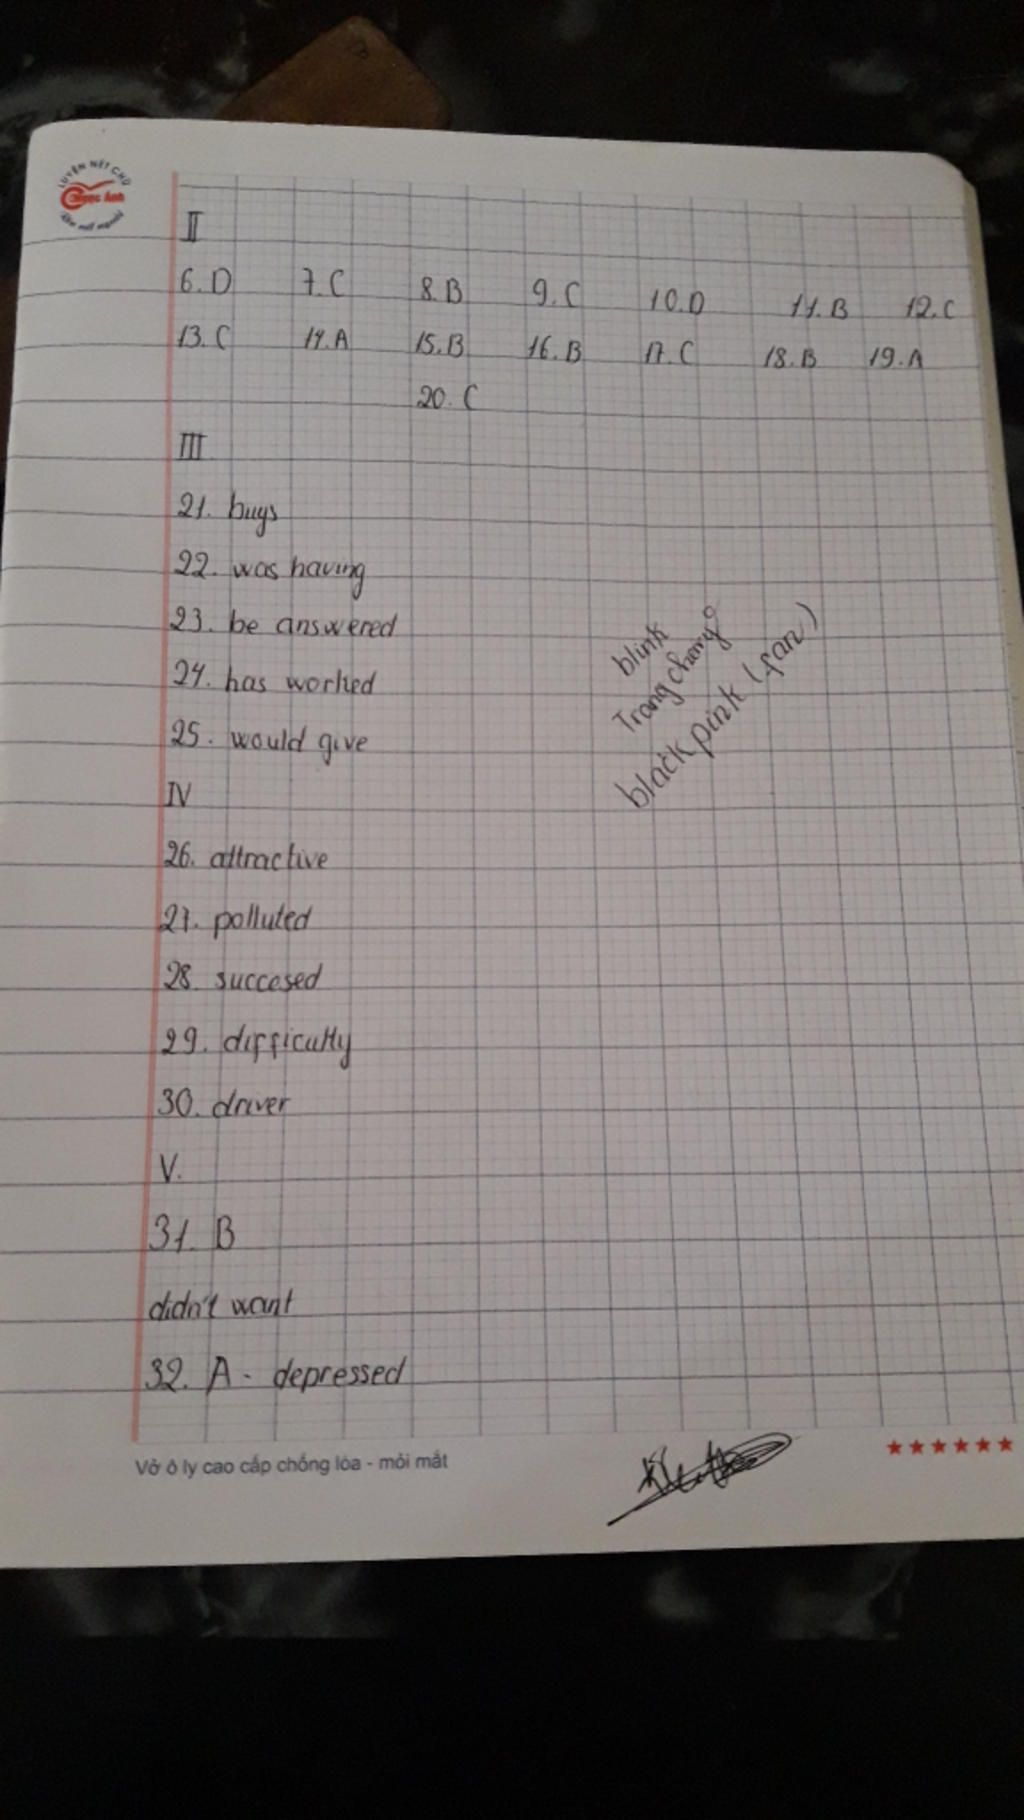 LUYỆN NÉT CHỮ
Ngọc Ánh
II
6. D 7. C 8. B 9. C 10. D 11. B 12. C
13. C 14. A 15. B 16. B 17. C 18. B 19. A
20. C
III
21. buys
22. was having
23. be answered
24. has worked
25. would give
blink
Trang chery
black pink (fan)
IV
26. attractive
27. polluted
28. succesed
29. difficultly
30. driver
V.
31. B
didn't want
32. A - depressed
Vở ô ly cao cấp chống lóa - mỏi mắt